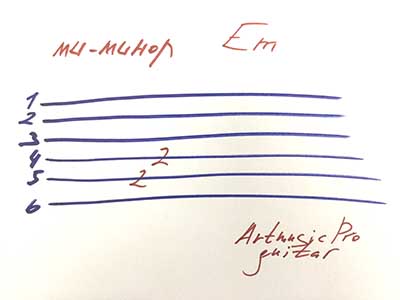 ми-минор Em
1
2
3
4 2
5 2
6
ArtmusicPro
guitar